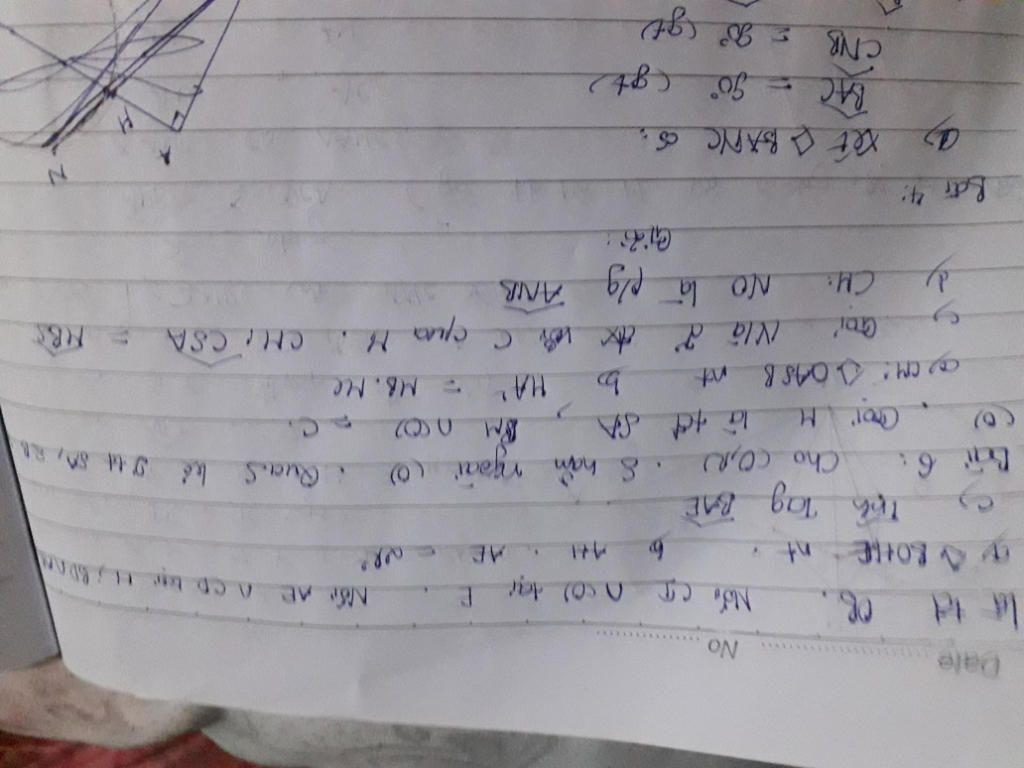 Date ............ No ............
là tđ OB. Nối CI ∩ (O) tại E. Nối AE ∩ CD tại H;
a) ◇ BOHE nt. b AH. AE = 2R²
c) Tính Tag BAE
Bài 6: Cho (O,R). S nằm ngoài (O). Qua S kẻ SA, SB
(O). Gọi M là tđ SA, BM ∩ (O) = C.
a) CM: ◇ OASB nt b MA² = MB. MC
c) Gọi N là đx với C qua M. CM: CSA = MBS
d) CM: NO là p/g ANB
Giải:
Bài 4:
a) Xét ◇ BANC có:
BAC = 90° (gt)
CNB = 90° (gt)
N
A
H